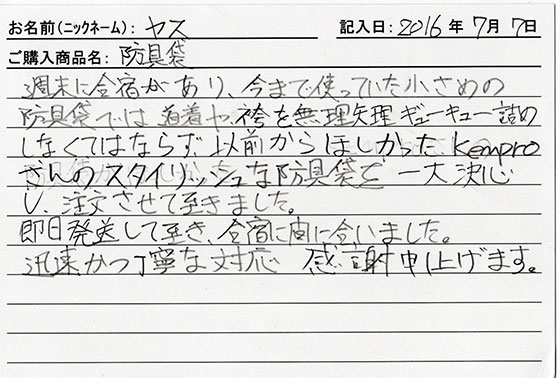 お名前(ニックネーム): ヤス 記入日: 2016 年 7月 7日
ご購入商品名: 防具袋
週末に合宿があり、今まで使っていた小さめの
防具袋では道着や袴を無理矢理ギューギュー詰め
しなくてはならず、以前からほしかった kenpro
さんのスタイリッシュな防具袋を一大決心
し、注文させて頂きました。
即日発送して頂き、合宿に間に合いました。
迅速かつ丁寧な対応 感謝申し上げます。